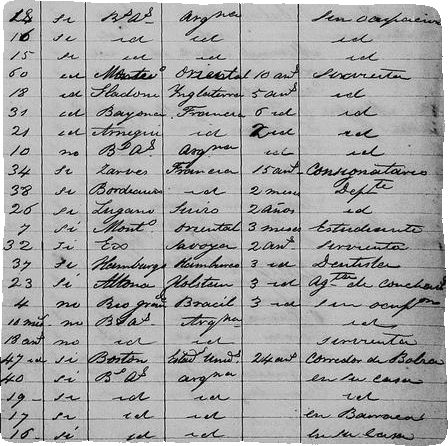 28 si Bs As Argna sin ocupacion
16 si id id id
15 si id id id
60 id Montevo Oriental 10 ans Sirvienta
18 id Ynglaterra 5 ans id
31 id Bayona Francia 6 id id
21 id id 2 id id
10 no Bs As Argna id id
34 si Francia 15 ans Consignatario
38 si Bordeaux id 2 meses Depte
26 si Lugano Suizo 2 años id
7 si Monto Oriental 3 meses Estudiante
32 si Savoya 2 ans Sirvienta
37 si Hamburgo Hamburgo 3 id Dentista
23 si Altona Holstein 3 id
4 no Rio grane Bracil 3 id sin ocupon
no Bs As Argna id
no id id sirvienta
47 id si Boston Estads Unids 24 ans Corredor de Bolsa
40 si Bs As Argna en su casa
19 si id id id
17 si id id en Barraca
16 si id id en su casa